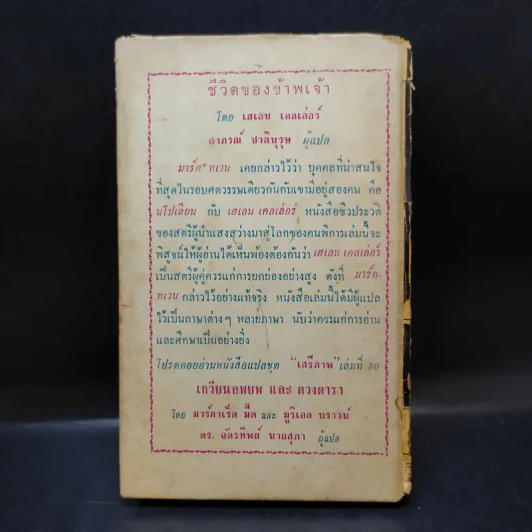 ชีวิตของข้าพเจ้า
โดย เฮเลน เคลเล่อร์
อาภรณ์ ชาติบุรุษ ผู้แปล
มาร์ค ทเวน เคยกล่าวไว้ว่า บุคคลที่น่าสนใจ
ที่สุดในรอบศตวรรษเดียวกันกับเขามีอยู่สองคน คือ
นโปเลียน กับ เฮเลน เคลเล่อร์ หนังสือชีวประวัติ
ของสตรีผู้นำแสงสว่างมาสู่โลกของคนพิการเล่มนี้จะ
พิสูจน์ให้ผู้อ่านได้เห็นพ้องต้องกันว่า เฮเลน เคลเล่อร์
เป็นสตรีผู้คู่ควรแก่การยกย่องอย่างสูง ดังที่ มาร์ค-
ทเวน กล่าวไว้อย่างแท้จริง หนังสือเล่มนี้ได้มีผู้แปล
ไว้เป็นภาษาต่างๆ หลายภาษา นับว่าควรแก่การอ่าน
และศึกษาเป็นอย่างยิ่ง
โปรดคอยอ่านหนังสือแปลชุด "เสรีภาพ" เล่มที่ 30
เกวียนอพยพ และ ดวงดารา
โดย มาร์กาเร็ต มี้ด และ มูริเอล บราวน์
ดร. ฉัตรทิพย์ นาถสุภา ผู้แปล